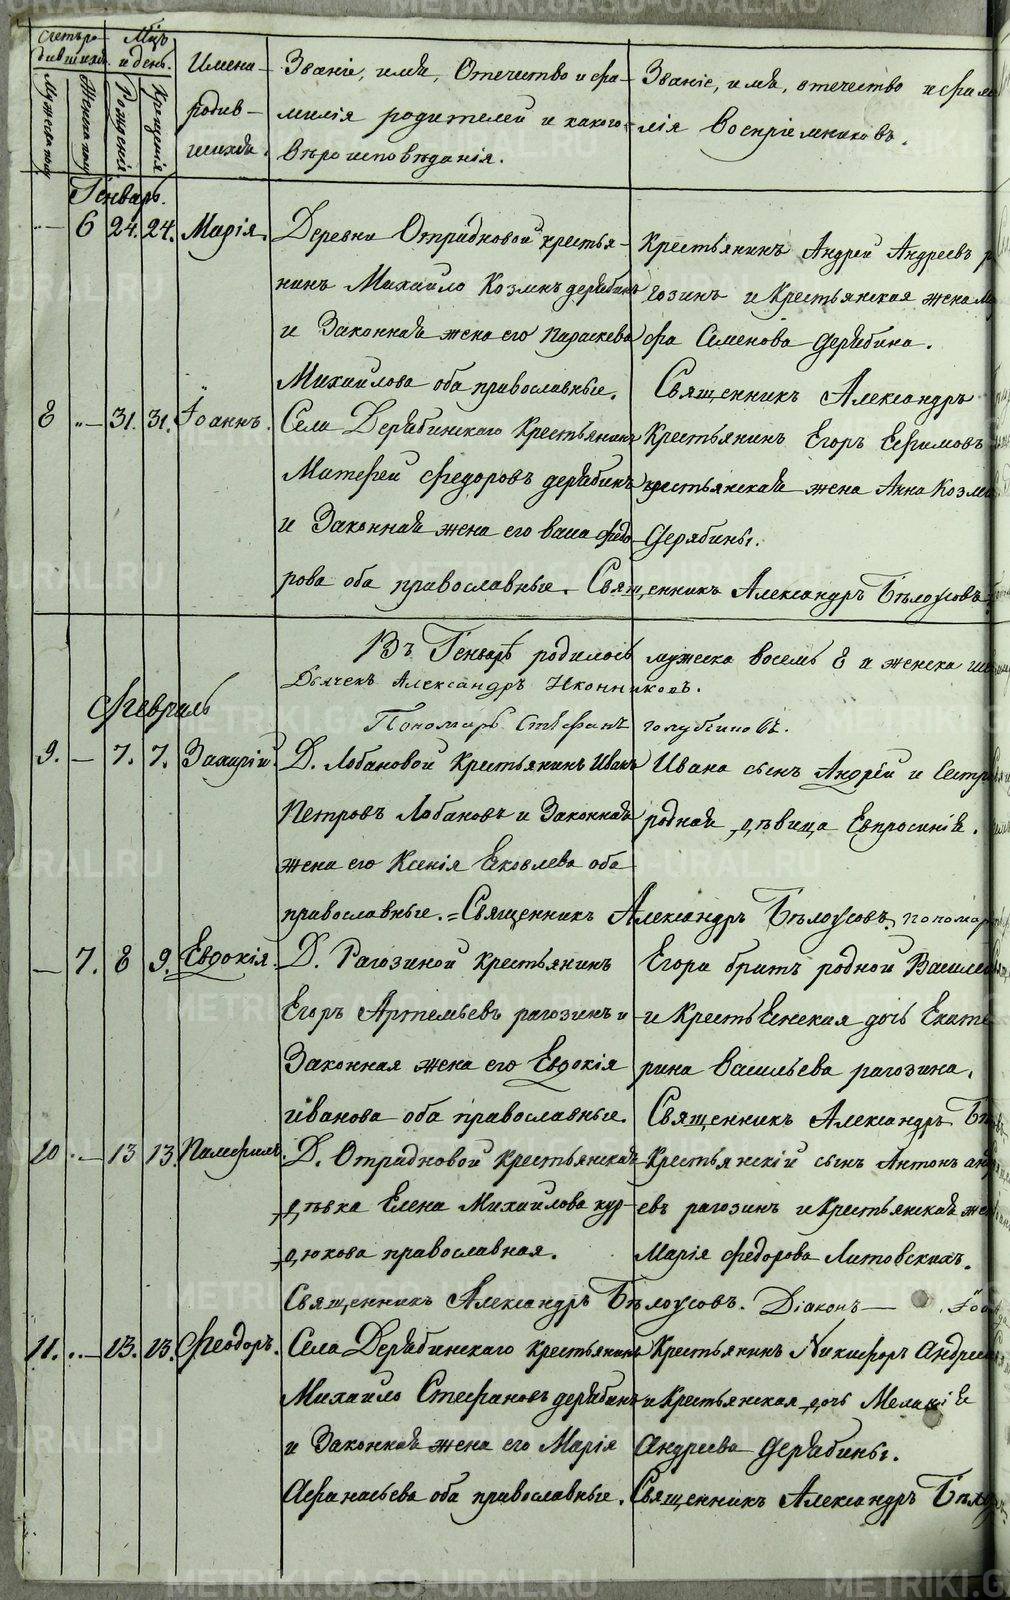 Счетъ ро-
дившихся.
Мѣц.
и день.
Мужеска полу
Женска полу
Рожденія
Крещенія
Имена
родив-
шихся.
Званіе, имя, Отечество и фа-
милія родителей и какого
вѣроисповѣданія.
Званіе, имя, отечество и фами
лія Воспріемниковъ.
Генварь.
6 24. 24. Марія.
Деревни Отрадновой крестья-
нинъ Михайло Козминъ дерябинъ
и Законная жена его Параскева
Михайлова оба православные.
Крестьянинъ Андрей Андреевъ ра
гозинъ и Крестьянская жена Ма
фа Семенова Дерябина.
Священникъ Александръ
8 31. 31. Іоаннъ.
Села Дерябинскаго Крестьянинъ
Матфей Федоровъ дерябинъ
и Законная жена его васа федо
рова оба православные. Священникъ Александръ Бѣлоусовъ
Крестьянинъ Егоръ Ефимовъ
крестьянская жена Анна Козми
Дерябины.
Въ Генварѣ родилось мужеска восемь 8 и женска ше
Дьячекъ Александръ Иконниковъ.
Пономарь Стефанъ голубчиковъ.
Февраль
9. 7. 7. Захарій.
Д. Лобановой Крестьянинъ Иванъ
Петровъ Лобановъ и Законная
жена его Ксенія Яковлева оба
православные. = Священникъ Александръ Бѣлоусовъ. пономар
Ивана сынъ Андрей и Сестра
родная дѣвица Евпросинія.
7. 8 9. Евдокія.
Д. Рагозиной крестьянинъ
Егоръ Артемьевъ рагозинъ и
Законная жена его Евдокія
иванова оба православные.
Егора братъ родной Василей
и Крестьянская дочь Екате
рина Васильева рагозина.
Священникъ Александръ Бѣ
10. 13 13. Памфилъ.
Д. Отрадновой Крестьянская
дѣвка Елена Михайлова кур-
дюкова православная.
Крестьянскій сынъ Антонъ андр
евъ рагозинъ и Крестьянская же
Марія Федорова Литовскихъ.
Священникъ Александръ Бѣлоусовъ. Діаконъ —
11. 13. 13. Феодоръ.
Села Дерябинскаго крестьянинъ
Михайло Стефановъ дерябинъ
и Законная жена его Марія
Афанасьева оба православные.
Крестьянинъ Никифоръ Андреев
и Крестьянская дочь Меланія
Андреева Дерябины.
Священникъ Александръ Бѣлоу